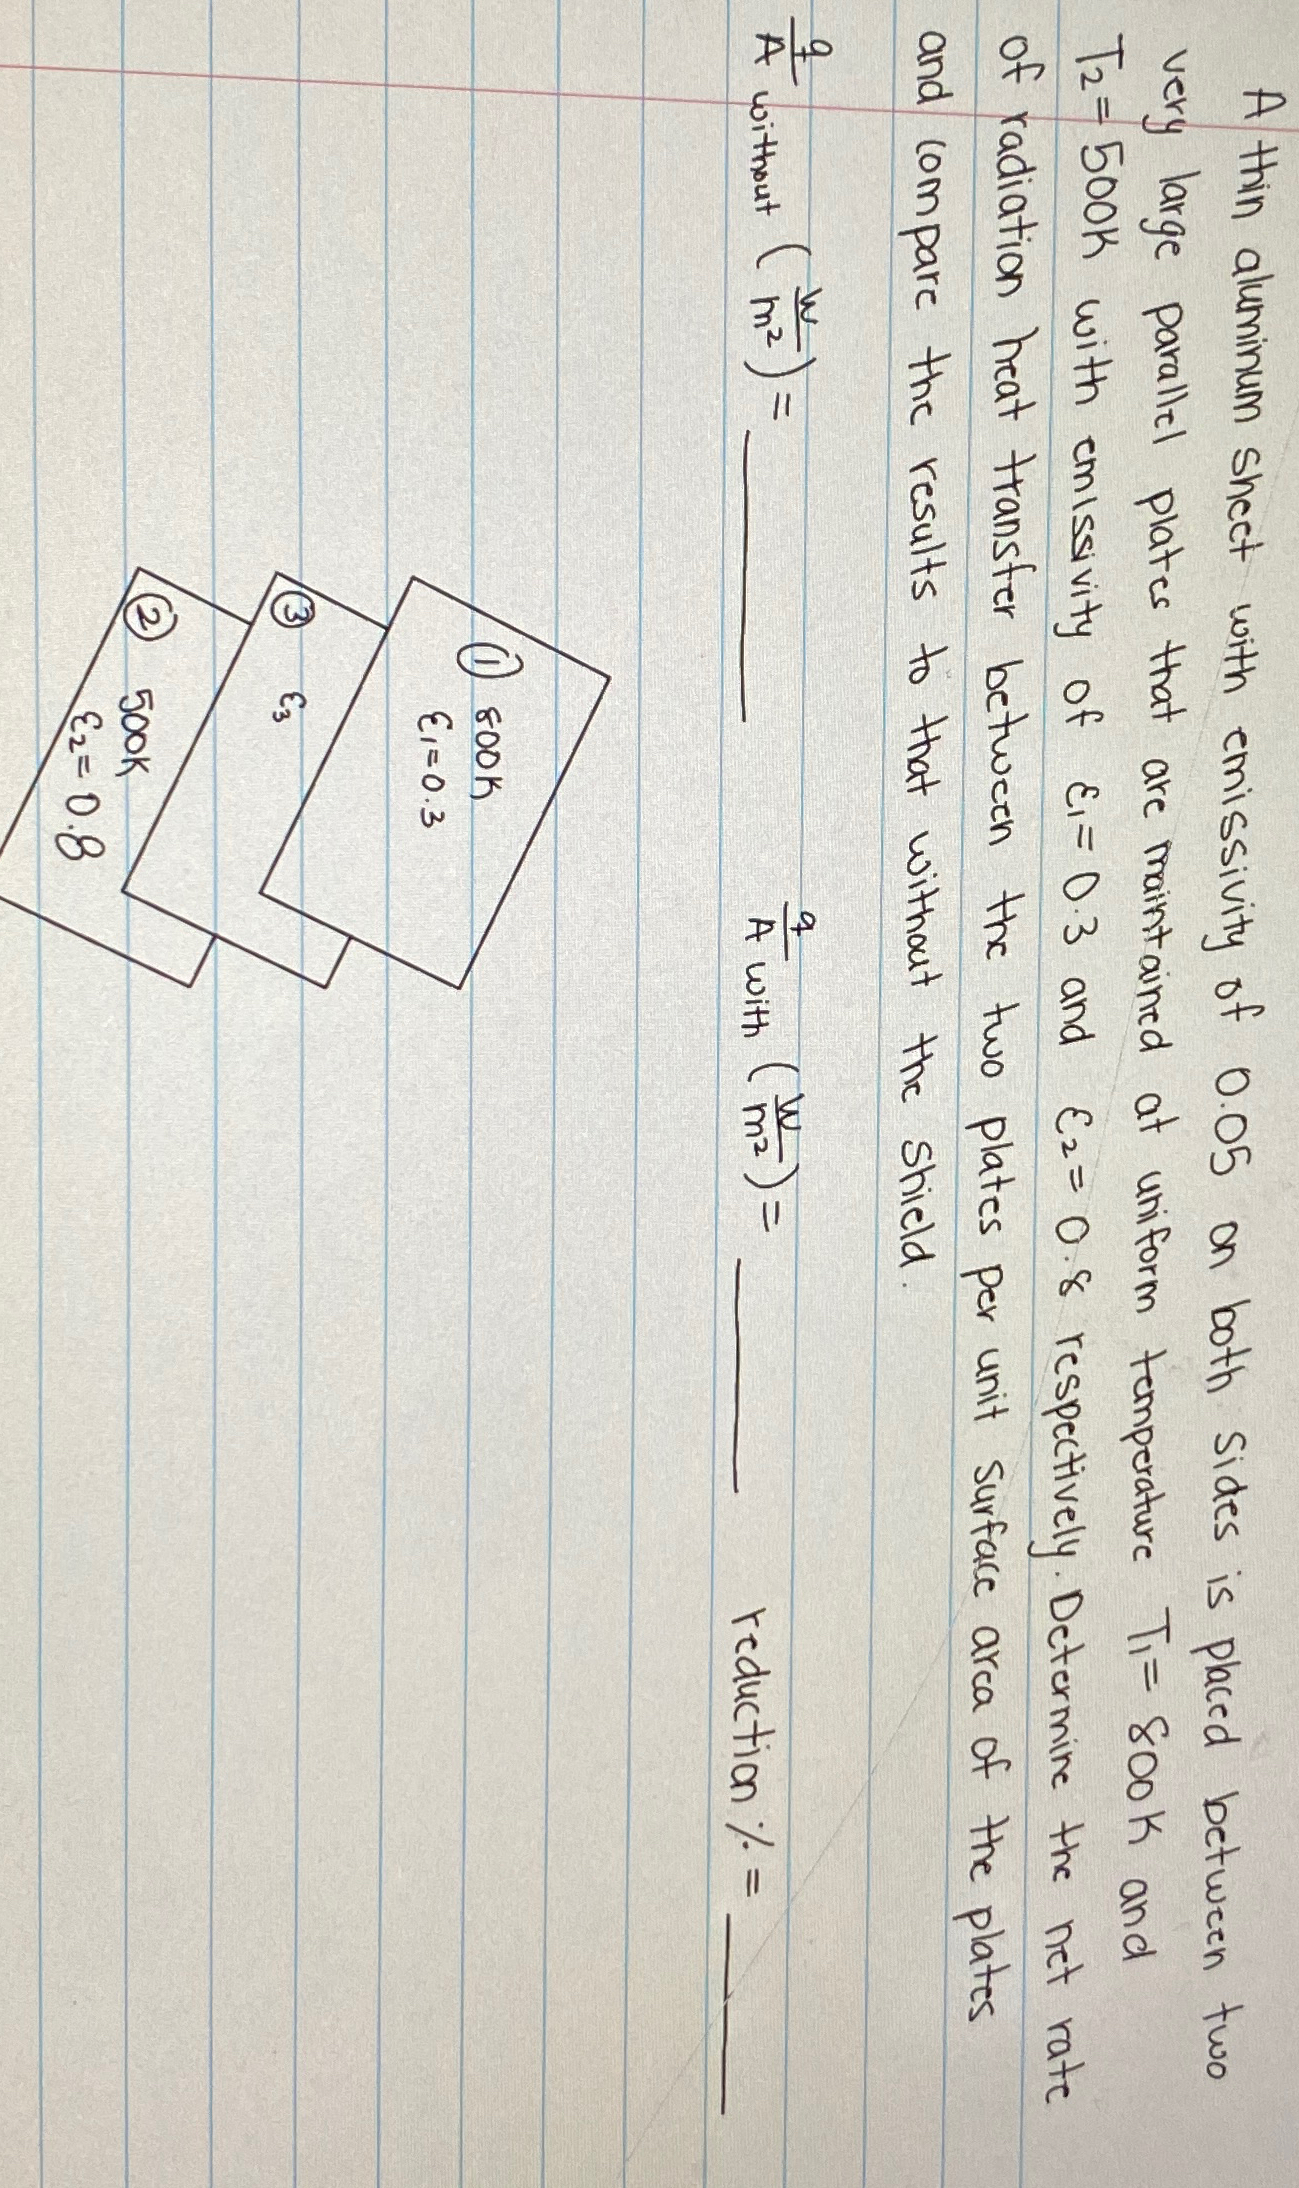 A thin aluminum sheet with emissivity of 0.05 on both sides is placed between two
very large parallel plates that are maintained at uniform temperature T₁ = 800K and
T₂ = 500K with emissivity of ε₁ = 0.3 and ε₂ = 0.8 respectively. Determine the net rate
of radiation heat transfer between the two plates per unit surface area of the plates
and compare the results to that without the shield.
q/A without (W/m²) = ______ q/A with (W/m²) = ______ reduction % = ______
① 800K
ε₁ = 0.3
③ ε₃
② 500K
ε₂ = 0.8